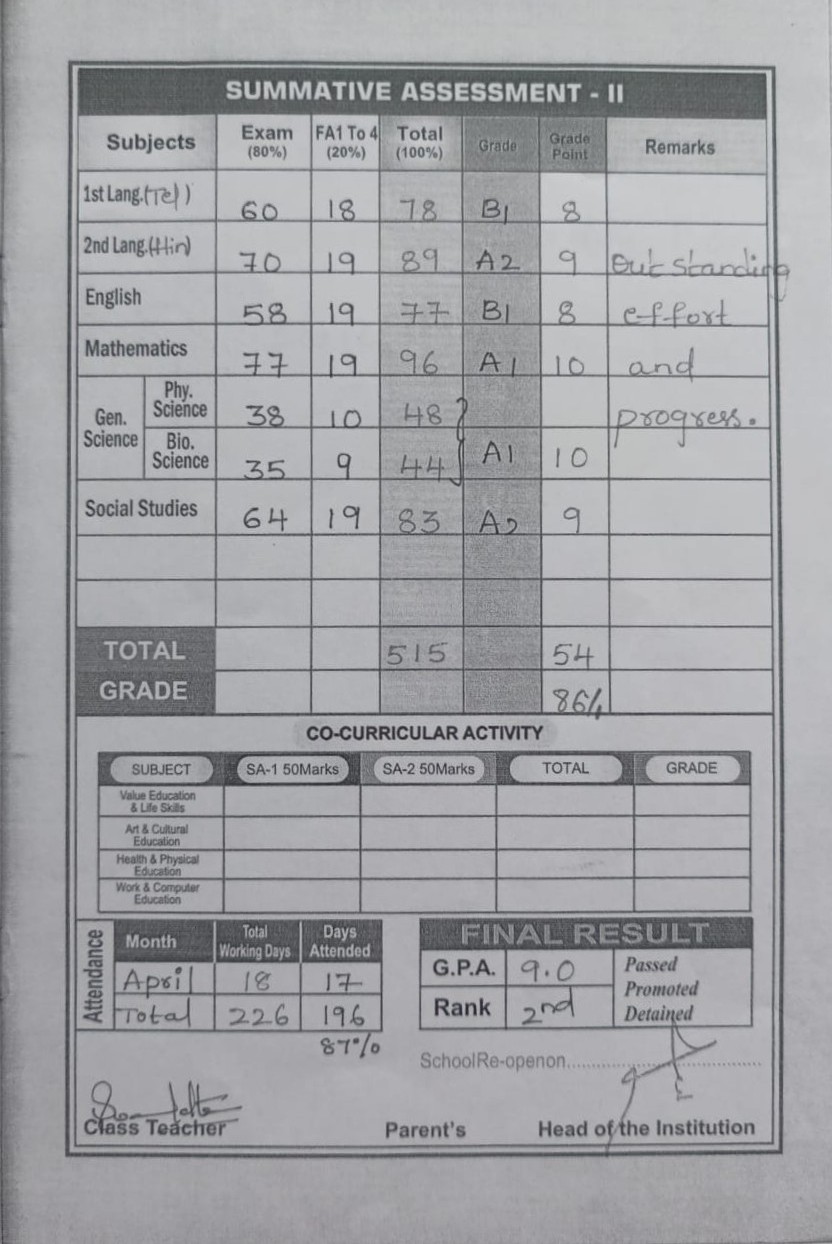 SUMMATIVE ASSESSMENT - II
Subjects Exam (80%) FA1 To 4 (20%) Total (100%) Grade Grade Point Remarks
1st Lang.(Tel) 60 18 78 B1 8
2nd Lang.(Hin) 70 19 89 A2 9 Outstanding
English 58 19 77 B1 8 effort
Mathematics 77 19 96 A1 10 and
Gen. Science Phy. Science 38 10 48 progress.
Bio. Science 35 9 44 A1 10
Social Studies 64 19 83 A2 9
TOTAL 515 54
GRADE 86%
CO-CURRICULAR ACTIVITY
SUBJECT SA-1 50Marks SA-2 50Marks TOTAL GRADE
Value Education & Life Skills
Art & Cultural Education
Health & Physical Education
Work & Computer Education
Attendance Month Total Working Days Days Attended
April 18 17
Total 226 196
87%
FINAL RESULT
G.P.A. 9.0 Passed
Promoted
Rank 2nd Detained
SchoolRe-openon..............................................
Class Teacher Parent's Head of the Institution